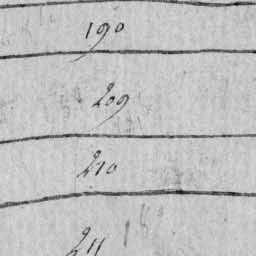 190
209
210
211